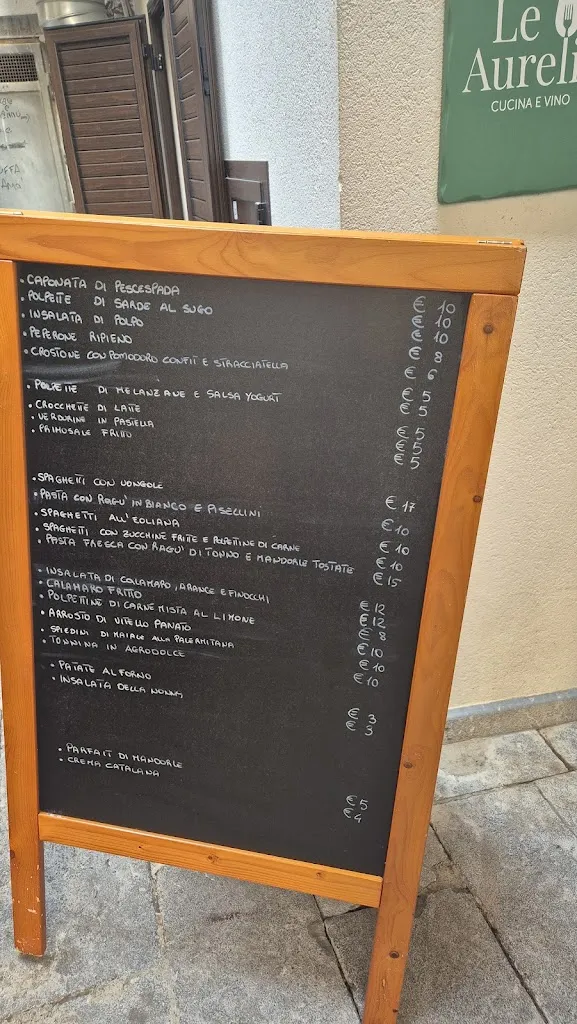 Le
Aureli
CUCINA E VINO
• CAPONATA DI PESCESPADA € 10
• POLPETTE DI SARDE AL SUGO € 10
• INSALATA DI POLPO € 10
• PEPERONE RIPIENO € 8
• CROSTONE CON POMODORO CONFIT E STRACCIATELLA € 6
• POLPETTE DI MELANZANE E SALSA YOGURT € 5
• CROCCHETTE DI LATTE € 5
• VERDURINE IN PASTELLA € 5
• PRIMOSALE FRITTO € 5
€ 5
• SPAGHETTI CON VONGOLE € 17
• PASTA CON RAGU' IN BIANCO E PISELLINI € 10
• SPAGHETTI ALL'EOLIANA € 10
• SPAGHETTI CON ZUCCHINE FRITTE E POLPETTINE DI CARNE € 10
• PASTA FRESCA CON RAGU' DI TONNO E MANDORLE TOSTATE € 15
• INSALATA DI CALAMARO, ARANCE E FINOCCHI € 12
• CALAMARO FRITTO € 12
• POLPETTINE DI CARNE MISTA AL LIMONE € 8
• ARROSTO DI VITELLO PANATO € 10
• SPIEDINI DI MAIALE ALLA PALERMITANA € 10
• TONNINA IN AGRODOLCE € 10
• PATATE AL FORNO € 3
• INSALATA DELLA NONNA € 3
• PARFAIT DI MANDORLE € 5
• CREMA CATALANA € 4